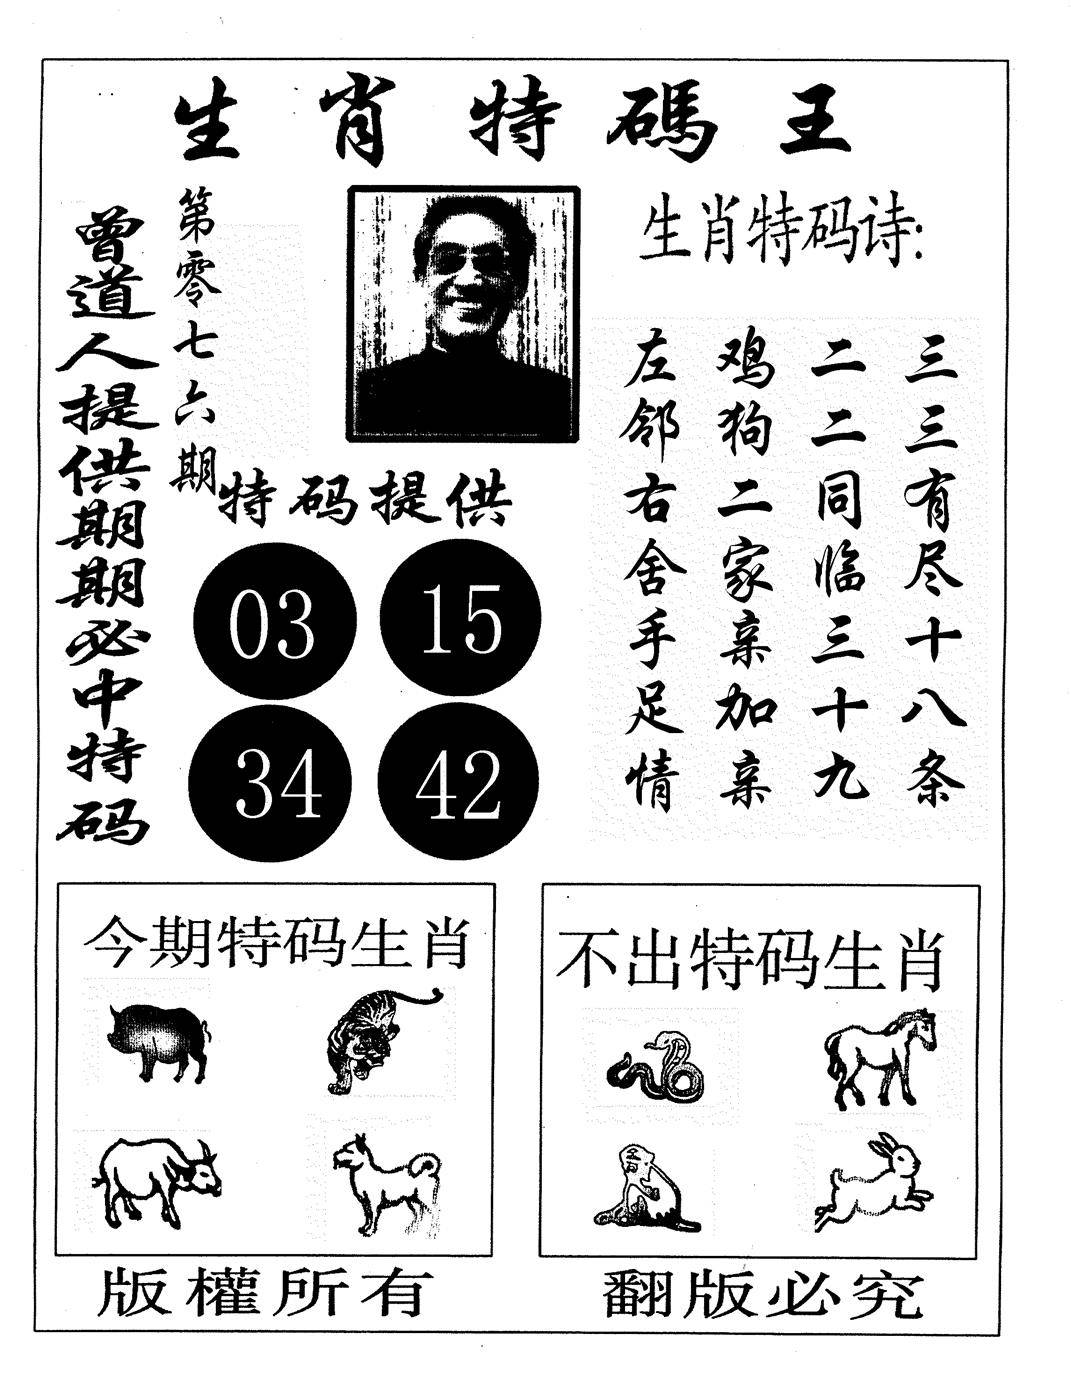 生肖特碼王
曾道人提供期期必中特码
第零七六期
特码提供
03 15
34 42
生肖特码诗:
三三有尽十八条
二二同临三十九
鸡狗二家亲加亲
左邻右舍手足情
今期特码生肖
不出特码生肖
版權所有
翻版必究